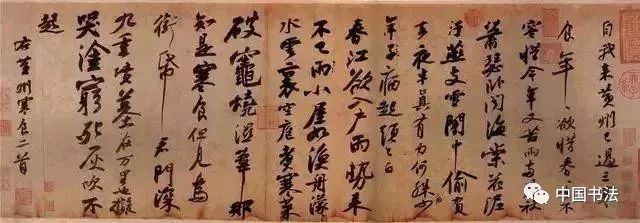 自我來黃州已過三寒
食年年欲惜春春去不
容惜今年又苦雨兩月秋
蕭瑟臥聞海棠花泥
汙燕支雪闇中偷負
去夜半真有力何殊病少
年子病起頭已白
春江欲入戶雨勢來
不已雨小屋如漁舟濛濛
水雲裏空庖煮寒菜
破竈燒濕葦那
知是寒食但見烏
銜帋君門深
九重墳墓在万里也擬
哭塗窮死灰吹不
起
右黃州寒食二首
中国书法